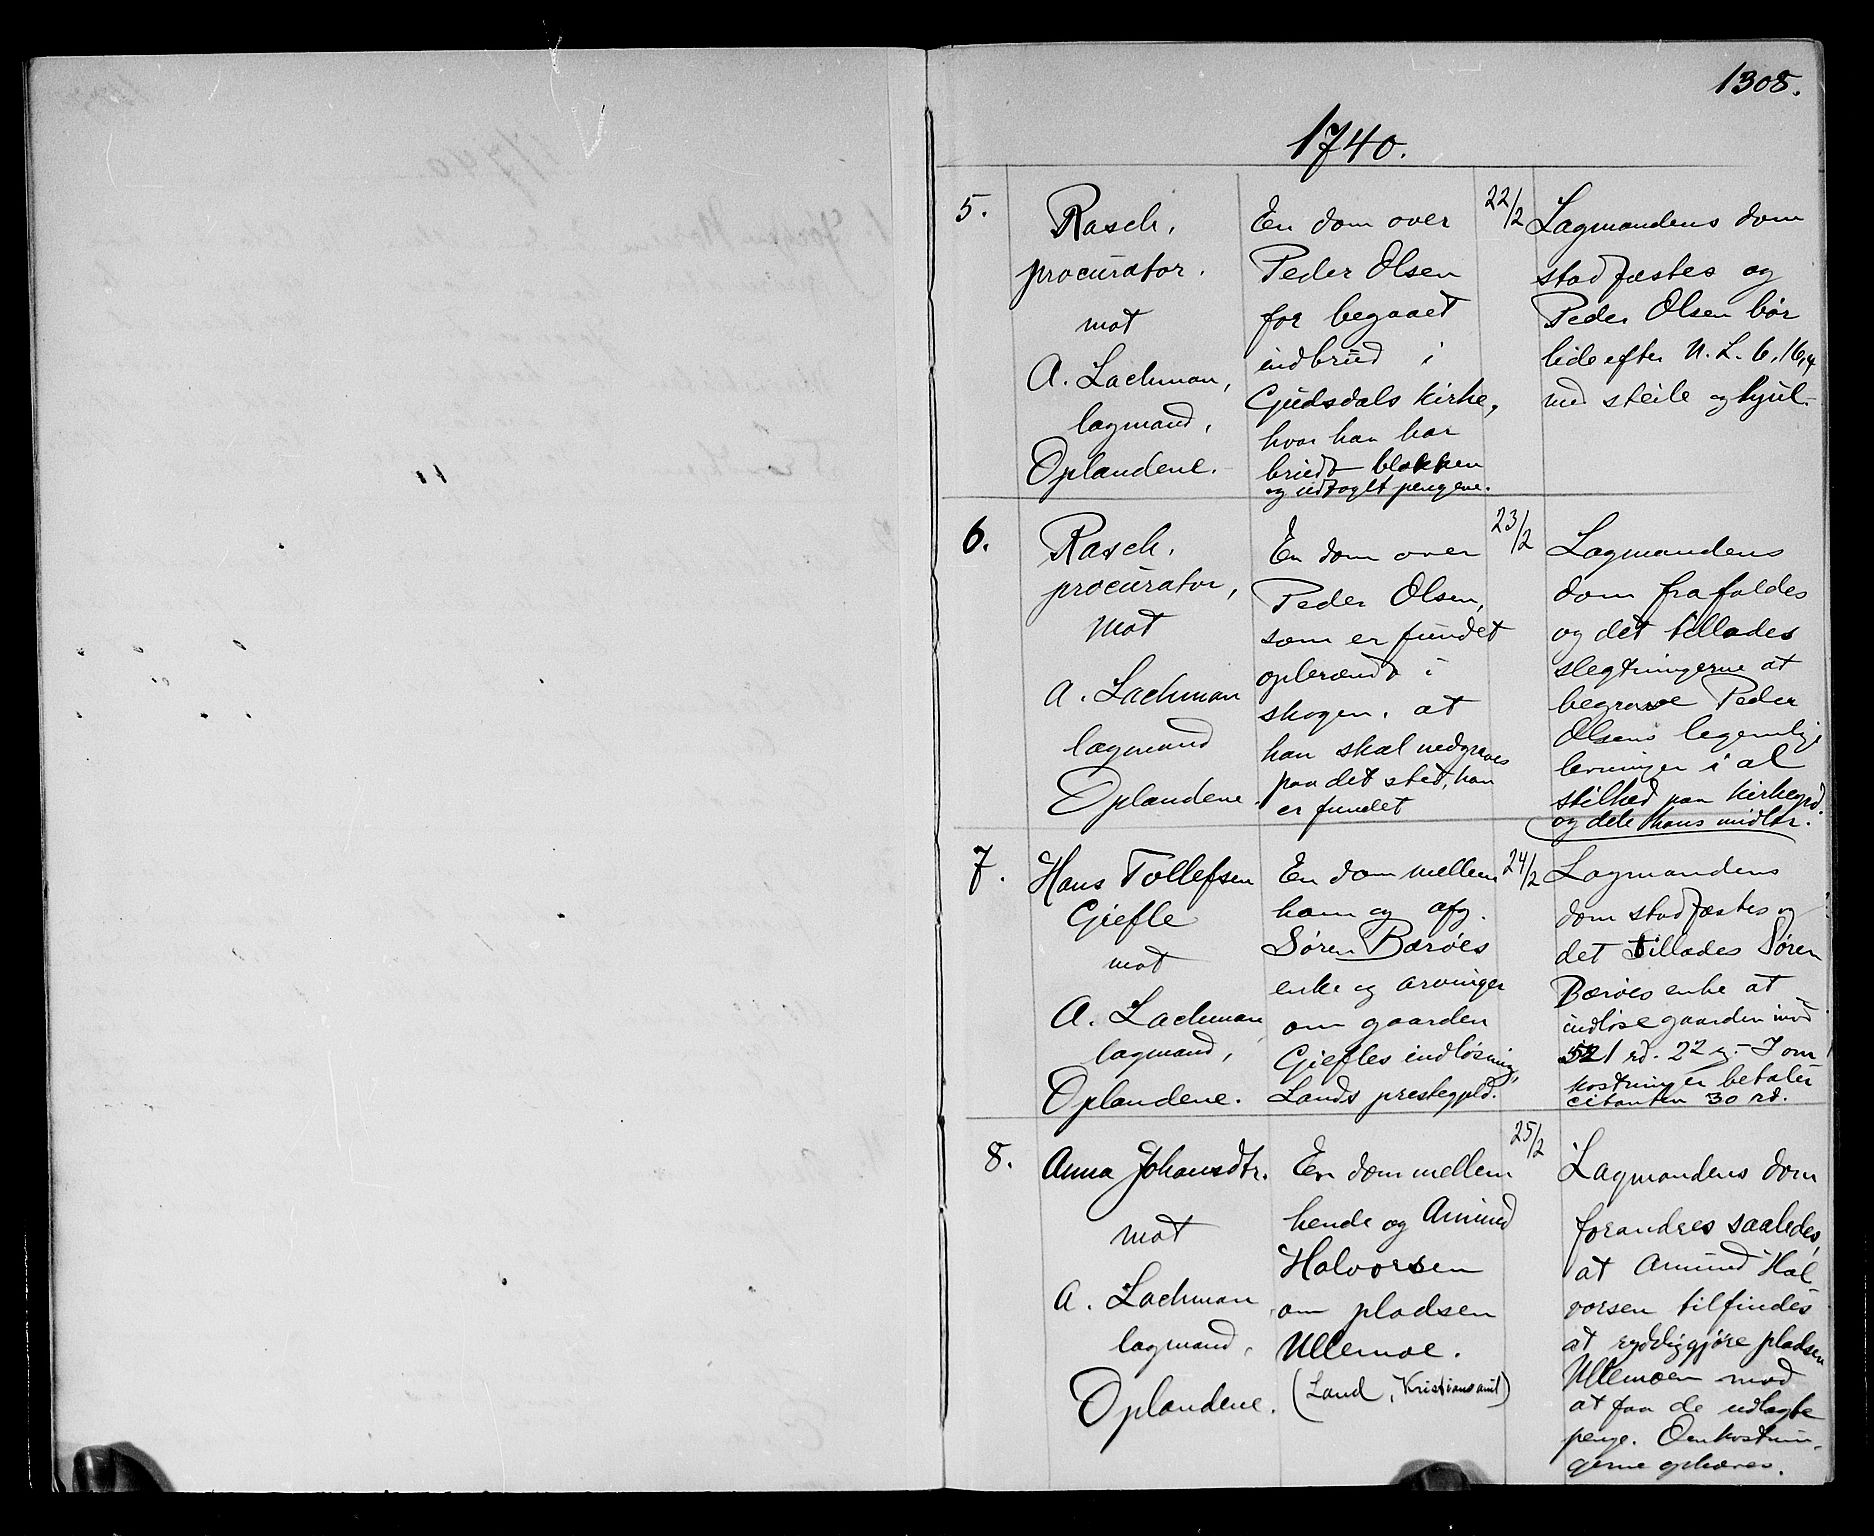 1308.
1740.
5.
Rasch,
procurator.
mot
A. Lachman,
lagmand,
Oplandene.
En dom over
Peder Olsen
for begaaet
indbrud i
Gudsdals kirke,
hvor han har
brudt blokken
og udtaglt pengene.
22/2
Lagmandens dom
stadfæstes og
Peder Olsen bør
lide efter N. L. 6, 16, 4
med steile og hjul.
6.
Rasch.
procurator,
mot
A. Lachman
lagmand
Oplandene.
En dom over
Peder Olsen,
som er fundet
opbrændt i
skogen, at
han skal nedgraves
paa det sted, han
er fundet
23/2
Lagmandens
dom frafaldes
og det tillades
slegtningerne at
begrave Peder
Olsens legemlige
levninger i al
stilhed paa kirkegrd.
og dele hans midler.
7.
Hans Tollefsen
Giefle
mot
A. Lachman
lagmand,
Oplandene.
En dom mellem
ham og afg.
Søren Bærøes
enke og arvinger
om gaarden
Giefles indløsning,
Lands prestegjeld.
24/2
Lagmandens
dom stadfæstes og
det tillades Søren
Bærøes enke at
indløse gaarden mod
521 rd. 22 s. - I om
kostninger betaler
citanten 30 rd.
8.
Anna Johansdtr.
mot
A. Lachman
lagmand,
Oplandene.
En dom mellem
hende og Amund
Halvorsen
om pladsen
Ullemoe.
(Land, Kristians amt)
25/2
Lagmandens dom
forandres saaledes,
at Amund Hal-
vorsen tilfindes
at ryddiggjøre pladsen
Ullemoen mod
at faa de udlagte
penge. Omkostnin-
gerne ophæves.